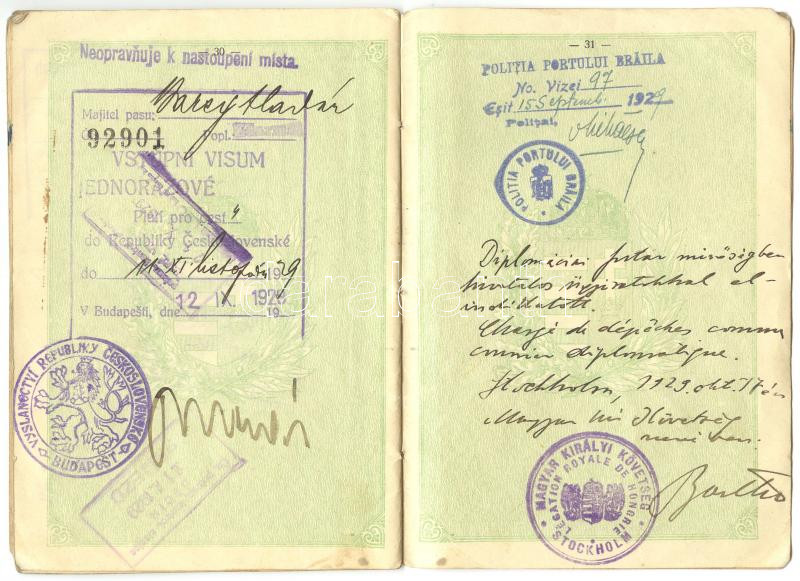 — 30 —
Neopravňuje k nastoupení místa.
Majitel pasu: Barcy Aladár
92901 Popl.
VSTUPNÍ VISUM
JEDNORÁZOVÉ
Platí pro cest
do Republiky Československé
do XI listopadu 1929
12 IX. 1929
V Budapešti, dne 19
VYSLANECTVÍ REPUBLIKY ČESKOSLOVENSKÉ
BUDAPEST
— 31 —
POLIȚIA PORTULUI BRĂILA
No. Vizei 97
Eșit 15 Septemb. 1929
Polițai,
POLIȚIA PORTULUI BRĂILA
Diplomáciai futár minőségben
hivatalos ügyiratokkal el-
indíttatott.
Chargé de dépêches comme
courrier diplomatique.
Stockholm, 1929. okt. 17-én
Magyar kir. Követség
nevében.
MAGYAR KIRÁLYI KÖVETSÉG
LEGATION ROYALE DE HONGRIE
STOCKHOLM
darabanth